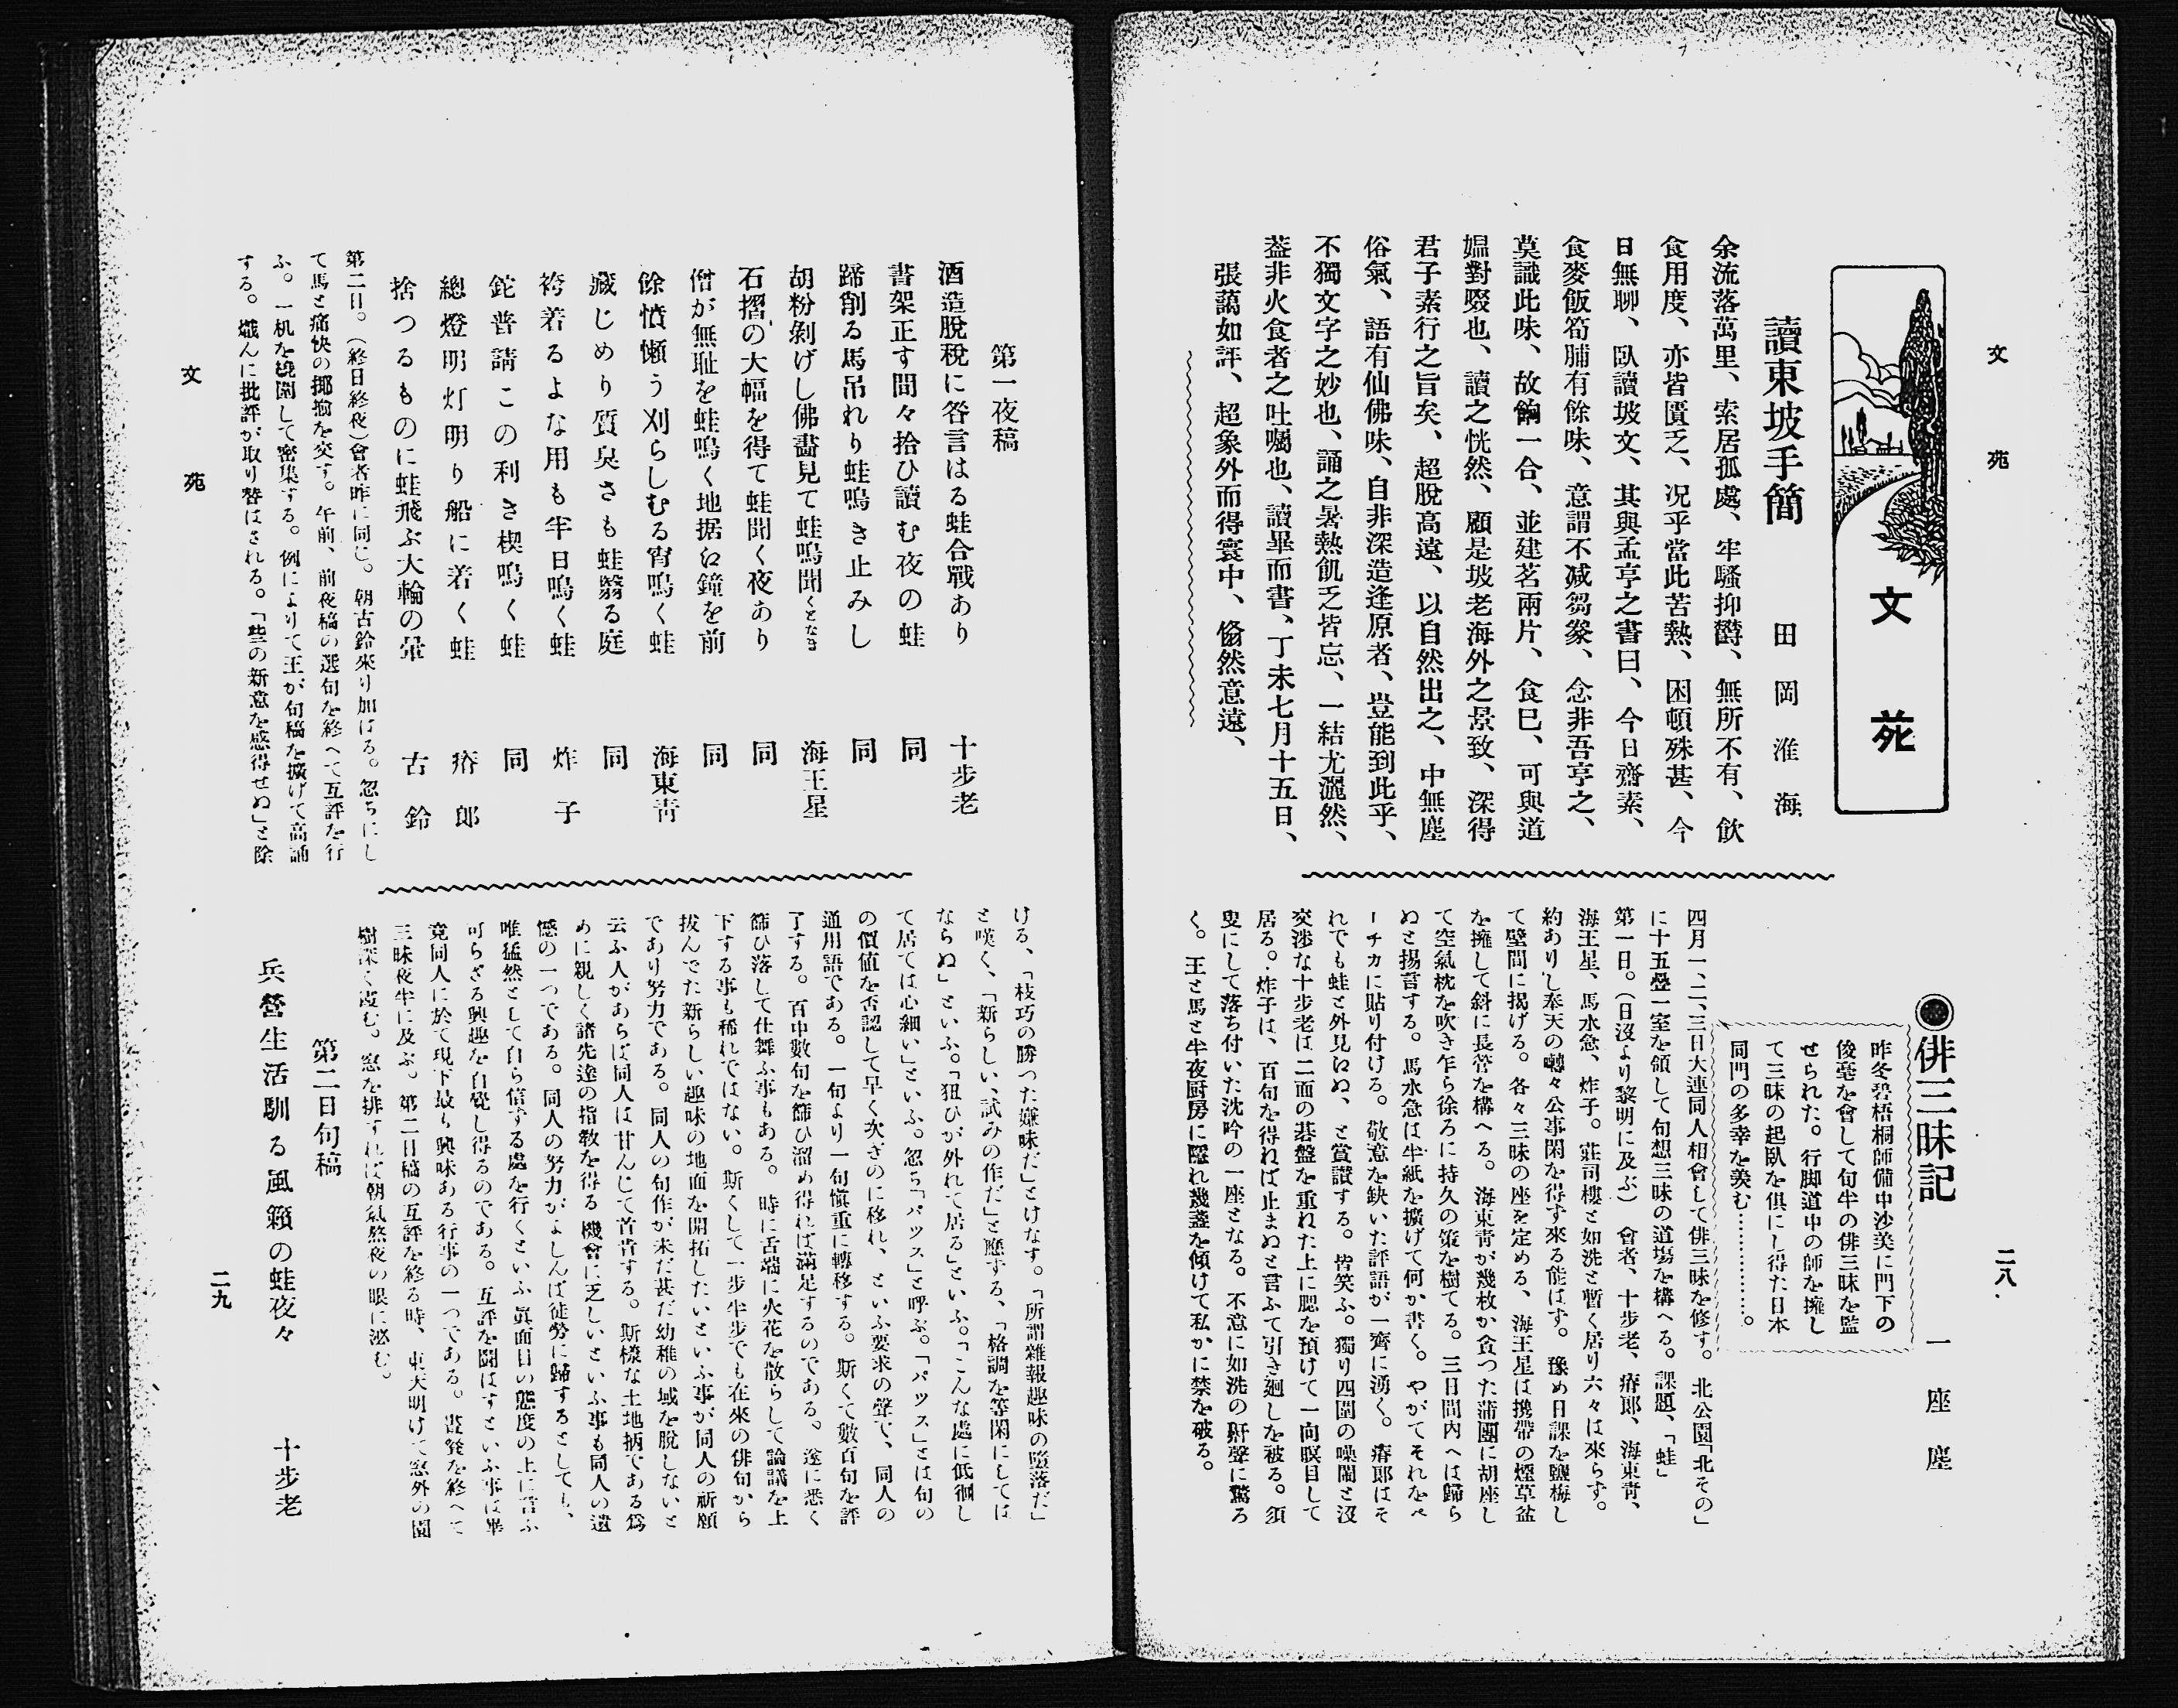 文苑
二八
文苑
讀東坡手簡
田岡淮海
余流落萬里、索居孤處、牢騷抑欝、無所不有、飲
食用度、亦皆匱乏、况乎當此苦熱、困頓殊甚、今
日無聊、臥讀坡文、其與孟亨之書曰、今日齋素、
食麥飯筍脯有餘味、意謂不减芻豢、念非吾亨之、
莫識此味、故餉一合、並建茗兩片、食已、可與道
媼對啜也、讀之恍然、顧是坡老海外之景致、深得
君子素行之旨矣、超脫高遠、以自然出之、中無塵
俗氣、語有仙佛味、自非深造逢原者、豈能到此乎、
不獨文字之妙也、誦之暑熱飢乏皆忘、一結尤灑然、
葢非火食者之吐囑也、讀畢而書、丁未七月十五日、
張藹如評、超象外而得寰中、翛然意遠、
●俳三昧記
一座塵
昨冬碧梧桐師備中沙美に門下の
俊毫を會して旬半の俳三昧を監
せられた。行脚道中の師を擁し
て三昧の起臥を俱にし得た日本
同門の多幸を羨む……………。
四月一、二、三日大連同人相會して俳三昧を修す。北公園「北その」
に十五疊一室を領して句想三昧の道塲を構へる。課題、「蛙」
第一日。（日沒より黎明に及ぶ）會者、十步老、瘠郎、海東靑、
海王星、馬水急、炸子。莊司樓と如洗と暫く居り六々は來らす。
約ありし奉天の囀々公事閑を得す來る能はす。豫め日課を鹽梅し
て壁間に揭げる。各々三昧の座を定める、海王星は携帶の煙草盆
を擁して斜に長管を構へる。海東靑が幾枚か食つた蒲團に胡座し
て空氣枕を吹き乍ら徐ろに持久の策を樹てる。三日間内へは歸ら
ぬと揚言する。馬水急は半紙を擴げて何か書く。やがてそれをペ
ーチカに貼り付ける。敬意を缺いた評語が一齊に湧く。瘠郎はそ
れでも蛙と外見いぬ、と賞讃する。皆笑ふ。獨り四圍の噪鬧と沒
交渉な十步老は二面の碁盤を重れた上に腮を預けて一向瞑目して
居る。炸子は、百句を得れば止まぬと言ふて引き廻しを被る。須
臾にして落ち付いた沈吟の一座となる。不意に如洗の鼾聲に驚ろ
く。王と馬と半夜厨房に隱れ幾盞を傾けて私かに禁を破る。
第一夜稿
酒造脫稅に咎言はる蛙合戰あり　十步老
書架正す間々拾ひ讀む夜の蛙　同
蹄削る馬吊れり蛙鳴き止みし　同
胡粉剝げし佛畵見て蛙鳴聞くとなき　海王星
石摺の大幅を得て蛙聞く夜あり　同
僧が無耻を蛙鳴く地据ゑ鐘を前　同
餘憤懶う刈らしむる宵鳴く蛙　海東靑
藏じめり質臭さも蛙翳る庭　同
袴着るよな用も半日鳴く蛙　炸子
鉈普請この利き楔鳴く蛙　同
總燈明灯明り船に着く蛙　瘠郎
捨つるものに蛙飛ぶ大輪の暈　古鈴
第二日。（終日終夜）會者昨に同じ。朝古鈴來り加はる。忽ちにし
て馬と痛快の揶揄を交す。午前、前夜稿の選句を終へて互評を行
ふ。一机を繞圍して密集する。例によりて王が句稿を擴げて高誦
する。熾んに批評が取り替はされる。「些の新意を感得せぬ」と除
ける、「技巧の勝つた嫌味だ」とけなす。「所謂雜報趣味の墮落だ」
と嘆く、「新らしい、試みの作だ」と應する、「格調を等閑にしては
ならぬ」といふ。「狙ひが外れて居る」といふ。「こんな處に低徊し
て居ては心細い」といふ。忽ち「パツス」と呼ぶ。「パツス」とは句の
の價値を否認して早く次ぎのに移れ、といふ要求の聲で、同人の
通用語である。一句より一句愼重に轉移する。斯くて數百句を評
了する。百中數句を篩ひ溜め得れば滿足するのである。遂に悉く
篩ひ落して仕舞ふ事もある。時に舌端に火花を散らして論議を上
下する事も稀れではない。斯くして一步半步でも在來の俳句から
拔んでた新らしい趣味の地面を開拓したいといふ事が同人の祈願
であり努力である。同人の句作が未だ甚だ幼稚の域を脫しないと
云ふ人があらば同人は甘んじて首肯する。斯樣な土地柄である爲
めに親しく諸先達の指敎を得る機會に乏しいといふ事も同人の遺
憾の一つである。同人の努力がよしんば徒勞に歸するとしても、
唯猛然として自ら信する處を行くといふ眞面目の態度の上に言ふ
可らざる興趣を自覺し得るのである。互評を鬪はすといふ事は畢
竟同人に於て現下最も興味ある行事の一つである。晝餐を終へて
三昧夜半に及ぶ。第二日稿の互評を終る時、東天明けて窓外の園
樹深く霞む。窓を排すれば朝氣熬夜の眼に沁む。
第二日句稿
兵營生活馴る風籟の蛙夜々　十步老
文苑
二九